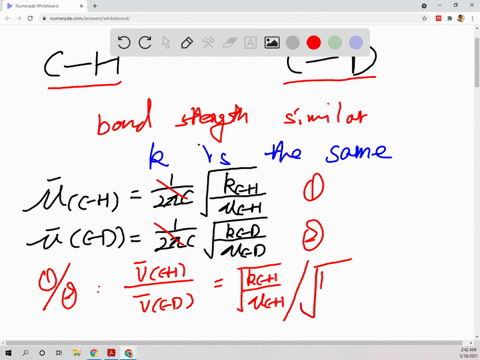 Numerade Whiteboard
numerade.com/answers/whiteboard/
C-H C-D
bond strength similar
k is the same
ν̄(C-H) = 1/2πc √(k_C-H/μ_C-H) ①
ν̄(C-D) = 1/2πc √(k_C-D/μ_C-D) ②
①/② : ν̄(C-H)/ν̄(C-D) = √(k_C-H/μ_C-H) / √
2:42 AM
5/18/2021